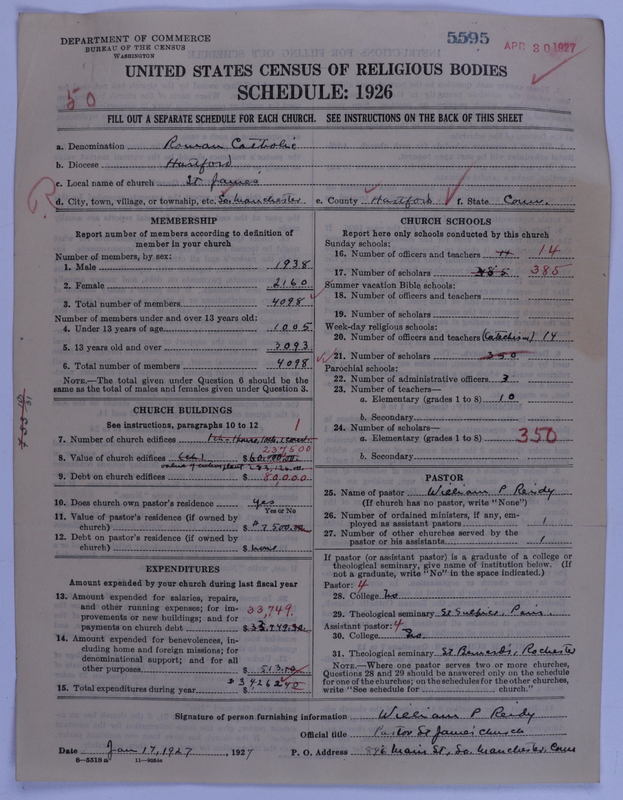 DEPARTMENT OF COMMERCE
BUREAU OF THE CENSUS
WASHINGTON
5595
APR 30 1927
UNITED STATES CENSUS OF RELIGIOUS BODIES
50
SCHEDULE: 1926
FILL OUT A SEPARATE SCHEDULE FOR EACH CHURCH. SEE INSTRUCTIONS ON THE BACK OF THIS SHEET
a. Denomination Roman Catholic
b. Diocese Hartford
c. Local name of church St James
d. City, town, village, or township, etc. So. Manchester e. County Hartford f. State Conn.
MEMBERSHIP
Report number of members according to definition of
member in your church
Number of members, by sex:
1. Male 1938
2. Female 2160
3. Total number of members 4098
Number of members under and over 13 years old:
4. Under 13 years of age 1005
5. 13 years old and over 3093
6. Total number of members 4098
NOTE.—The total given under Question 6 should be the
same as the total of males and females given under Question 3.
CHURCH BUILDINGS
See instructions, paragraphs 10 to 12
7. Number of church edifices 1
237500
8. Value of church edifices $
9. Debt on church edifices $ 80,000
10. Does church own pastor's residence yes
Yes or No
11. Value of pastor's residence (if owned by
church) $ 7500.00
12. Debt on pastor's residence (if owned by
church) $ none
EXPENDITURES
Amount expended by your church during last fiscal year
13. Amount expended for salaries, repairs,
and other running expenses; for im-
provements or new buildings; and for
payments on church debt 33,749. $
14. Amount expended for benevolences, in-
cluding home and foreign missions; for
denominational support; and for all
other purposes $ 513.00
15. Total expenditures during year $ 34262
CHURCH SCHOOLS
Report here only schools conducted by this church
Sunday schools:
16. Number of officers and teachers 14
17. Number of scholars 385 385
Summer vacation Bible schools:
18. Number of officers and teachers
19. Number of scholars
Week-day religious schools:
20. Number of officers and teachers (Catechism) 14
21. Number of scholars 350
Parochial schools:
22. Number of administrative officers 3
23. Number of teachers—
a. Elementary (grades 1 to 8) 10
b. Secondary
24. Number of scholars—
a. Elementary (grades 1 to 8) 350
b. Secondary
PASTOR
25. Name of pastor William P Reidy
(If church has no pastor, write "None")
26. Number of ordained ministers, if any, em-
ployed as assistant pastors 1
27. Number of other churches served by the
pastor or his assistants 1
If pastor (or assistant pastor) is a graduate of a college or
theological seminary, give name of institution below. (If
not a graduate, write "No" in the space indicated.)
Pastor: 4
28. College No
29. Theological seminary St Sulpice, Paris.
Assistant pastor: 4
30. College No.
31. Theological seminary St Bernards, Rochester
NOTE.—Where one pastor serves two or more churches,
Questions 28 and 29 should be answered only on the schedule
for one of the churches; on the schedules for the other churches,
write "See schedule for church."
Signature of person furnishing information William P Reidy
Official title Pastor St James church
Date Jan 17, 1927, 1927 P. O. Address 896 Main St, So. Manchester, Conn
6—5518 a